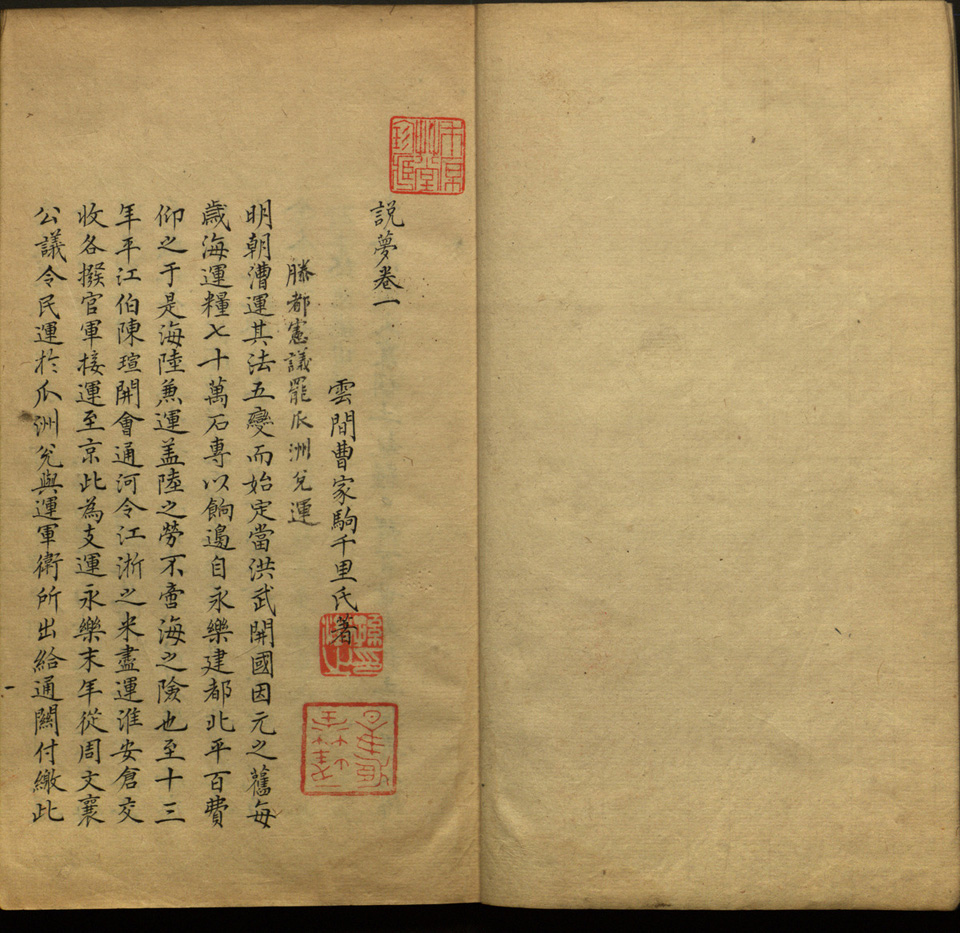 説夢卷一
雲間曹家駒千里氏著
滕都憲議罷瓜洲兌運
明朝漕運其法五變而始定當洪武開國因元之舊每
歲海運糧七十萬石專以餉邊自永樂建都北平百費
仰之于是海陸兼運盖陸之勞不啻海之險也至十三
年平江伯陳瑄開會通河令江浙之米盡運淮安倉交
收各撥官軍接運至京此為支運永樂末年從周文襄
公議令民運扵瓜洲兌與運軍衛所出給通關付繳此